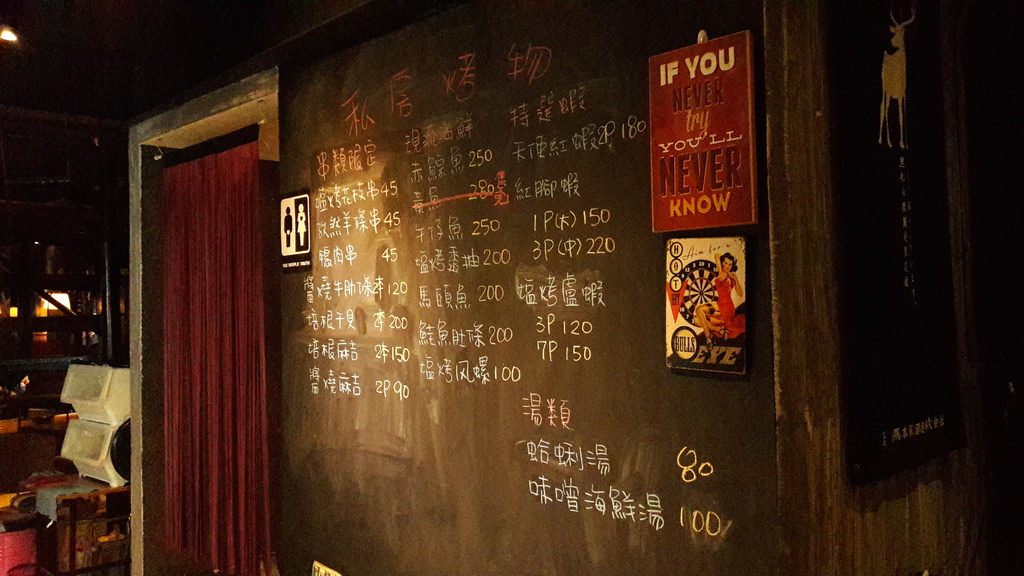 私房烤物
串類限定
鹽烤花枝串45
孜然羊條串45
鴨肉串 45
醬燒牛肋條2本120
培根干貝 2本200
培根麻吉 2本150
醬燒麻吉 2P90
現流海鮮
赤鯮魚250
280
午仔魚250
鹽烤透抽200
馬頭魚200
鮭魚肚條200
鹽烤风螺100
特選蝦
天使紅蝦2P180
紅腳蝦
1P(大)150
3P(中)220
鹽烤盧蝦
3P120
7P150
湯類
蛤蜊湯 80
味噌海鮮湯 100
IF YOU
NEVER
try
YOU'LL
NEVER
KNOW
HOT
BULLS
EYE